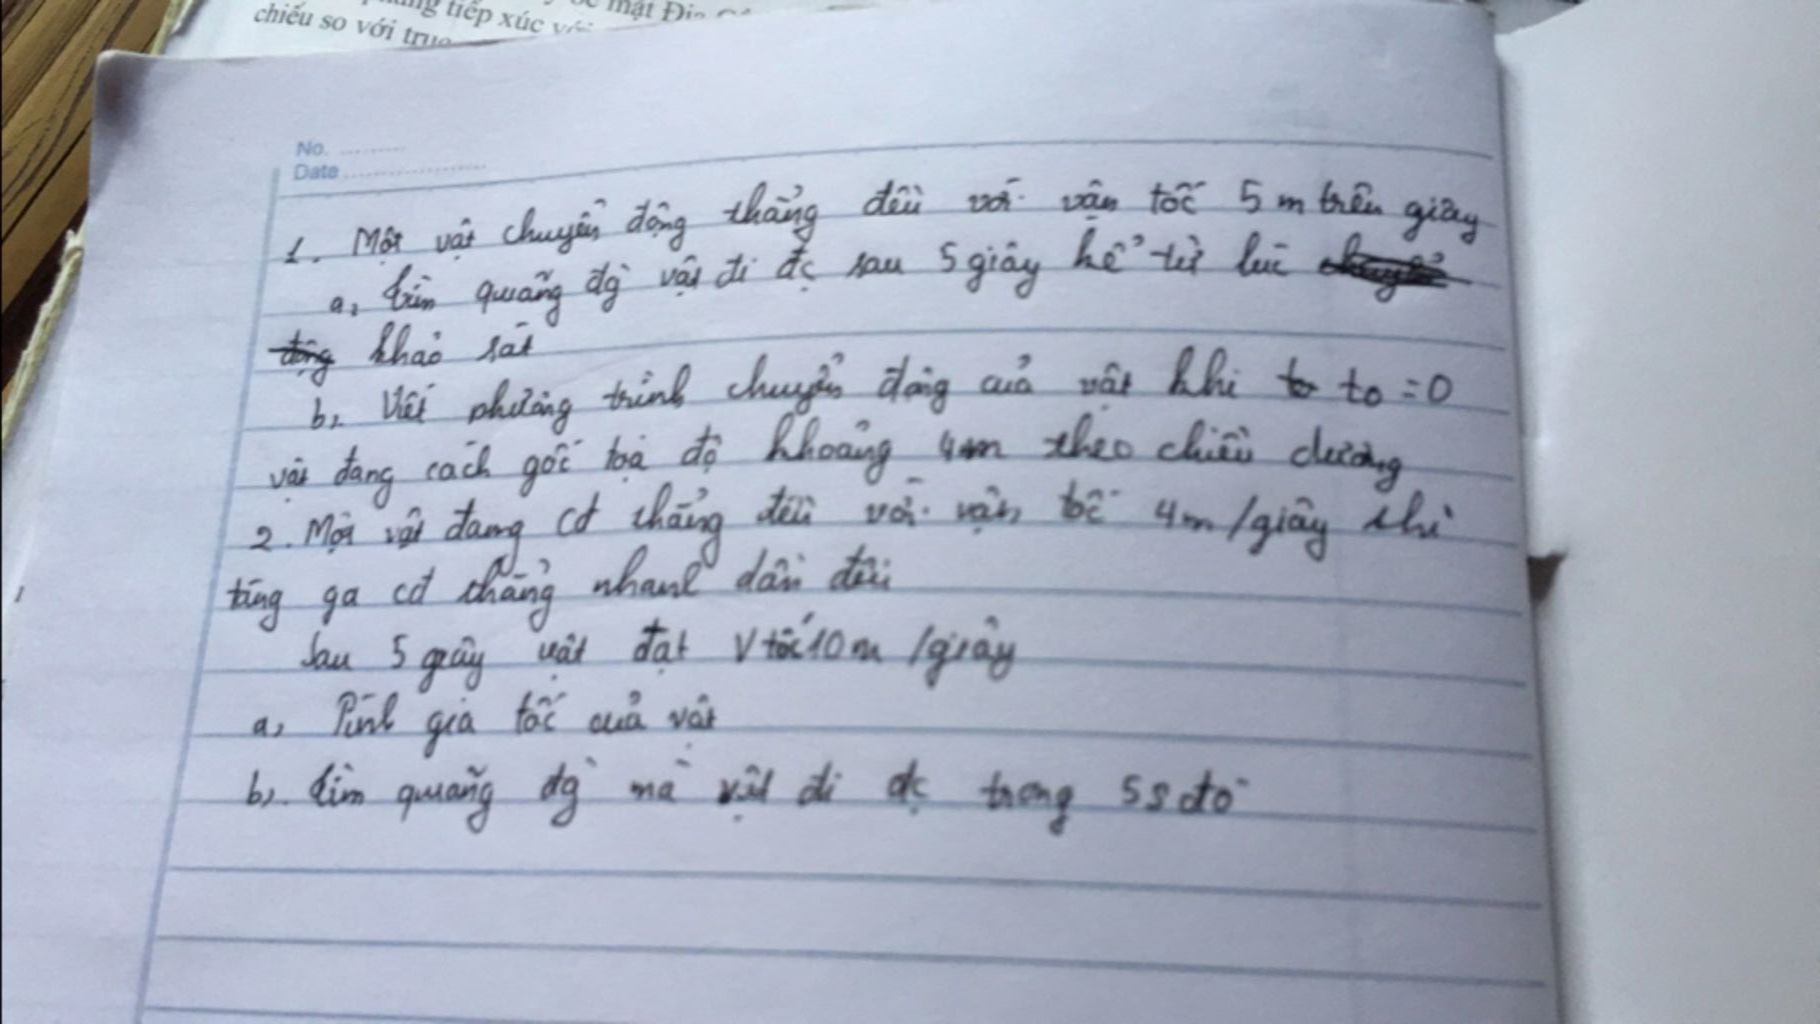 tiếp xúc với
mặt Địa
chiếu so với trục
No.
Date
1. Một vật chuyển động thẳng đều với vận tốc 5 m trên giây
a, tìm quãng đg vật đi đc sau 5 giây kể từ lúc
động khảo sát
b, Viết phương trình chuyển động của vật khi to to = 0
vật đang cách gốc toạ độ khoảng 4m theo chiều dương
2. Một vật đang cđ thẳng đều với vận tốc 4m/giây thì
tăng ga cđ thẳng nhanh dần đều
Sau 5 giây vật đạt v tốc 10m /giây
a, Tính gia tốc của vật
b, tìm quãng đg mà vật đi đc trong 5s đó